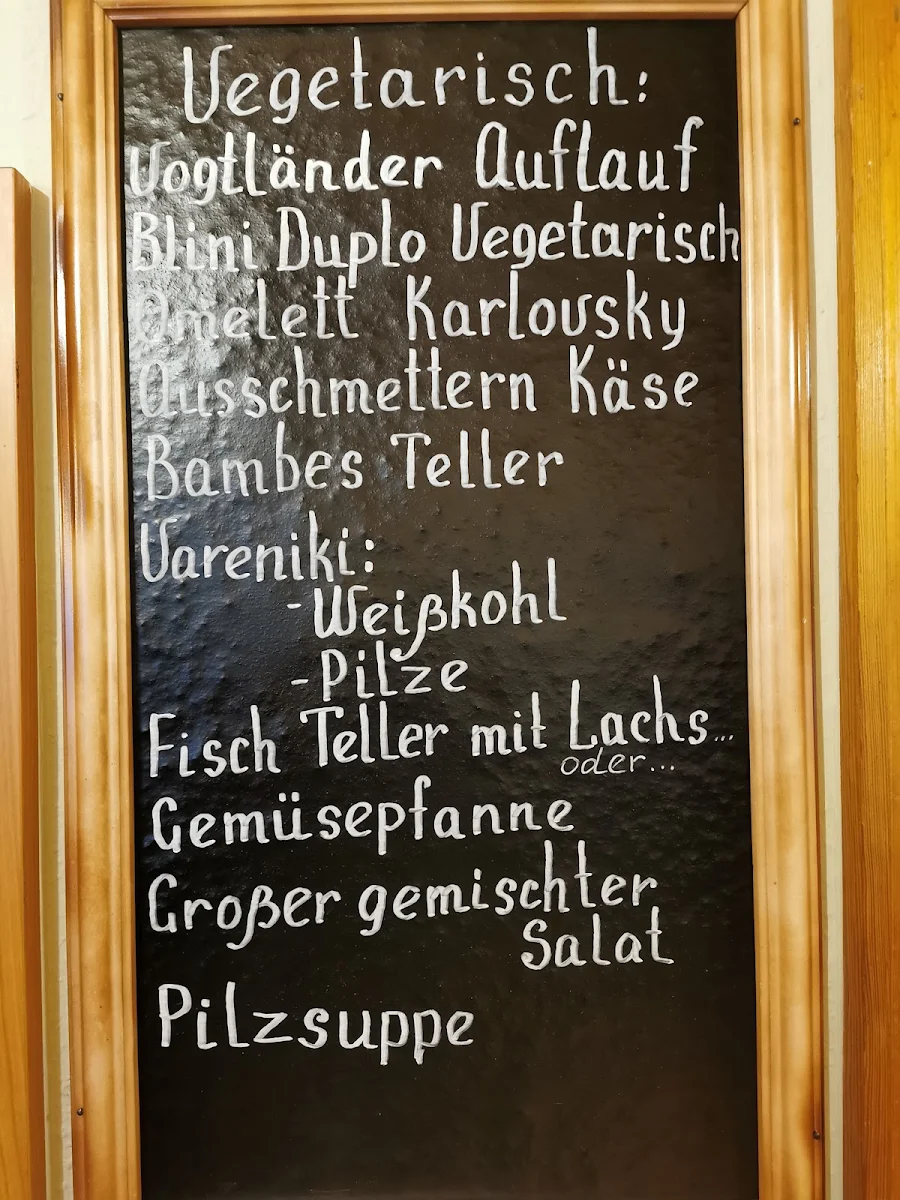 Vegetarisch:
Vogtländer Auflauf
Blini Duplo Vegetarisch
Omelett Karlovsky
Ausschmettern Käse
Bambes Teller
Vareniki:
-Weißkohl
-Pilze
Fisch Teller mit Lachs...
oder...
Gemüsepfanne
Großer gemischter
Salat
Pilzsuppe